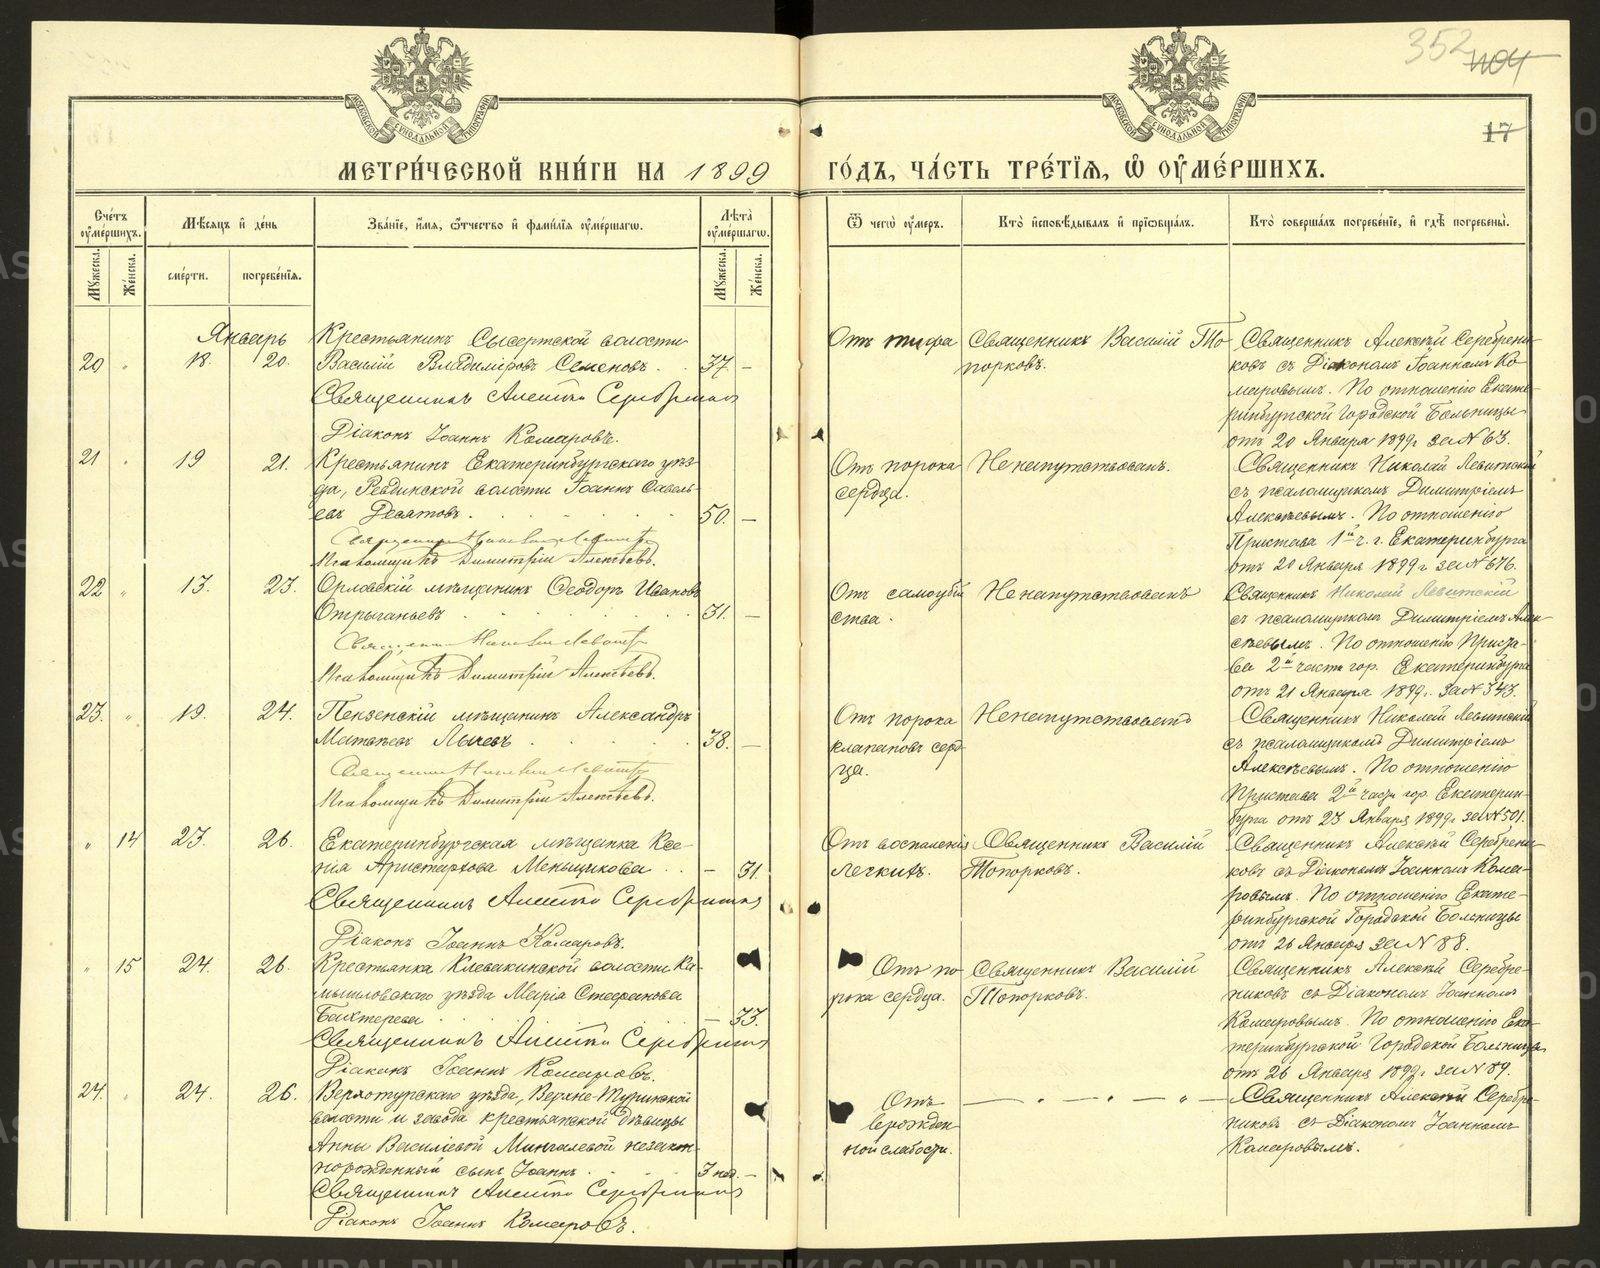 352
404
17
МЕТРИ́ЧЕСКОЙ КНИ́ГИ НА 1899 ГО́ДЪ, ЧА́СТЬ ТРЕ́ТЇѦ, Ѡ ОУМЕ́РШИХЪ.
Сче́тъ оуме́ршихъ.
Мѣсяцъ и҆ де́нь
Зва́нїе, и҆мя, ѻтчество и҆ фами́лїя оуме́ршагѡ.
Лѣта̀ оуме́ршагѡ.
Ѿ чегѡ̀ оу́меръ.
Кто̀ и҆сповѣ́дывалъ и҆ прїѡбща́лъ.
Кто̀ соверша́лъ погребе́нїе, и҆ гдѣ̀ погребены̀.
Мꙋ́жеска.
Же́нска.
сме́рти.
погребе́нїя.
Мꙋ́жеска.
Же́нска.
Январь
20 " 18. 20.
Крестьянинъ Сысертской волости
Василій Владиміровъ Семеновъ. 37. –
Священникъ Алексѣй Серебренниковъ
Діаконъ Іоаннъ Комаровъ.
Отъ тифа
Священникъ Василій То
порковъ.
Священникъ Алексѣй Серебрени
ковъ съ Діакономъ Іоанномъ Ко
маровымъ. По отношенію Екате-
ринбургской Городской Больницы
отъ 20 Января 1899г за N 63.
21 " 19 21.
Крестьянинъ Екатеринбургскаго уѣз-
да, Ревдинской волости Іоаннъ Савель-
евъ Десятовъ. 50. –
Священникъ Николай Левитскій
Псаломщикъ Димитрій Алексѣевъ.
Отъ порока
сердца.
Ненапутствованъ.
Священникъ Николай Левитскій
съ псаломщикомъ Димитріемъ
Алексѣевымъ. По отношенію
Пристава 1й ч. г. Екатеринбурга
отъ 20 Января 1899 г за N 676.
22 " 13. 23.
Орловскій мѣщанинъ Ѳеодоръ Ивановъ
Отрыганьевъ. 31. –
Священникъ Николай Левитскій
Псаломщикъ Димитрій Алексѣевъ.
Отъ самоубій
ства.
Ненапутствованъ
Священникъ Николай Левитскій
съ псаломщикомъ Димитріемъ Алек
сѣевымъ. По отношенію Приста-
ва 2й части гор. Екатеринбурга
отъ 21 Января 1899г. за N 343.
23. " 19. 24.
Пензенскій мѣщанинъ Александръ
Матвѣевъ Лычевъ. 38. –
Священникъ Николай Левитскій
Псаломщикъ Димитрій Алексѣевъ.
Отъ порока
клапановъ серд
ца.
Ненапутствованъ
Священникъ Николай Левитскій
съ псаломщикомъ Димитріемъ
Алексѣевымъ. По отношенію
Пристава 2й части гор. Екатерин-
бурга отъ 23 Января 1899г за N 501.
" 14 23. 26.
Екатеринбургская мѣщанка Ксе-
нія Аристархова Меньщикова – 31.
Священникъ Алексѣй Серебренниковъ
Діаконъ Іоаннъ Комаровъ.
Отъ воспаленія
легкихъ.
Священникъ Василій
Топорковъ.
Священникъ Алексѣй Серебрени
ковъ съ Діакономъ Іоанномъ Кома-
ровымъ. По отношенію Екате-
ринбургской Городской Больницы
отъ 26 Января за N 88.
" 15 24. 26.
Крестьянка Клевакинской волости Ка-
мышловскаго уѣзда Марія Стефанова
Бахтерева – 33.
Священникъ Алексѣй Серебренниковъ
Діаконъ Іоаннъ Комаровъ.
Отъ по-
рока сердца.
Священникъ Василій
Топорковъ.
Священникъ Алексѣй Серебре-
никовъ съ Діакономъ Іоанномъ
Комаровымъ. По отношенію Ека-
теринбургской Городской Больницы
отъ 26 Января 1899г за N 89.
24. " 24. 26.
Верхотурскаго уѣзда, Верхне-Туринской
волости и завода крестьянской дѣвицы
Анны Василіевой Мингалевой незакон-
норожденный сынъ Іоаннъ. 3 нед. –
Священникъ Алексѣй Серебренниковъ
Діаконъ Іоаннъ Комаровъ.
Отъ
врожден
ной слабости.
— " — " — " —
Священникъ Алексѣй Серебре-
никовъ съ Діакономъ Іоанномъ
Комаровымъ.